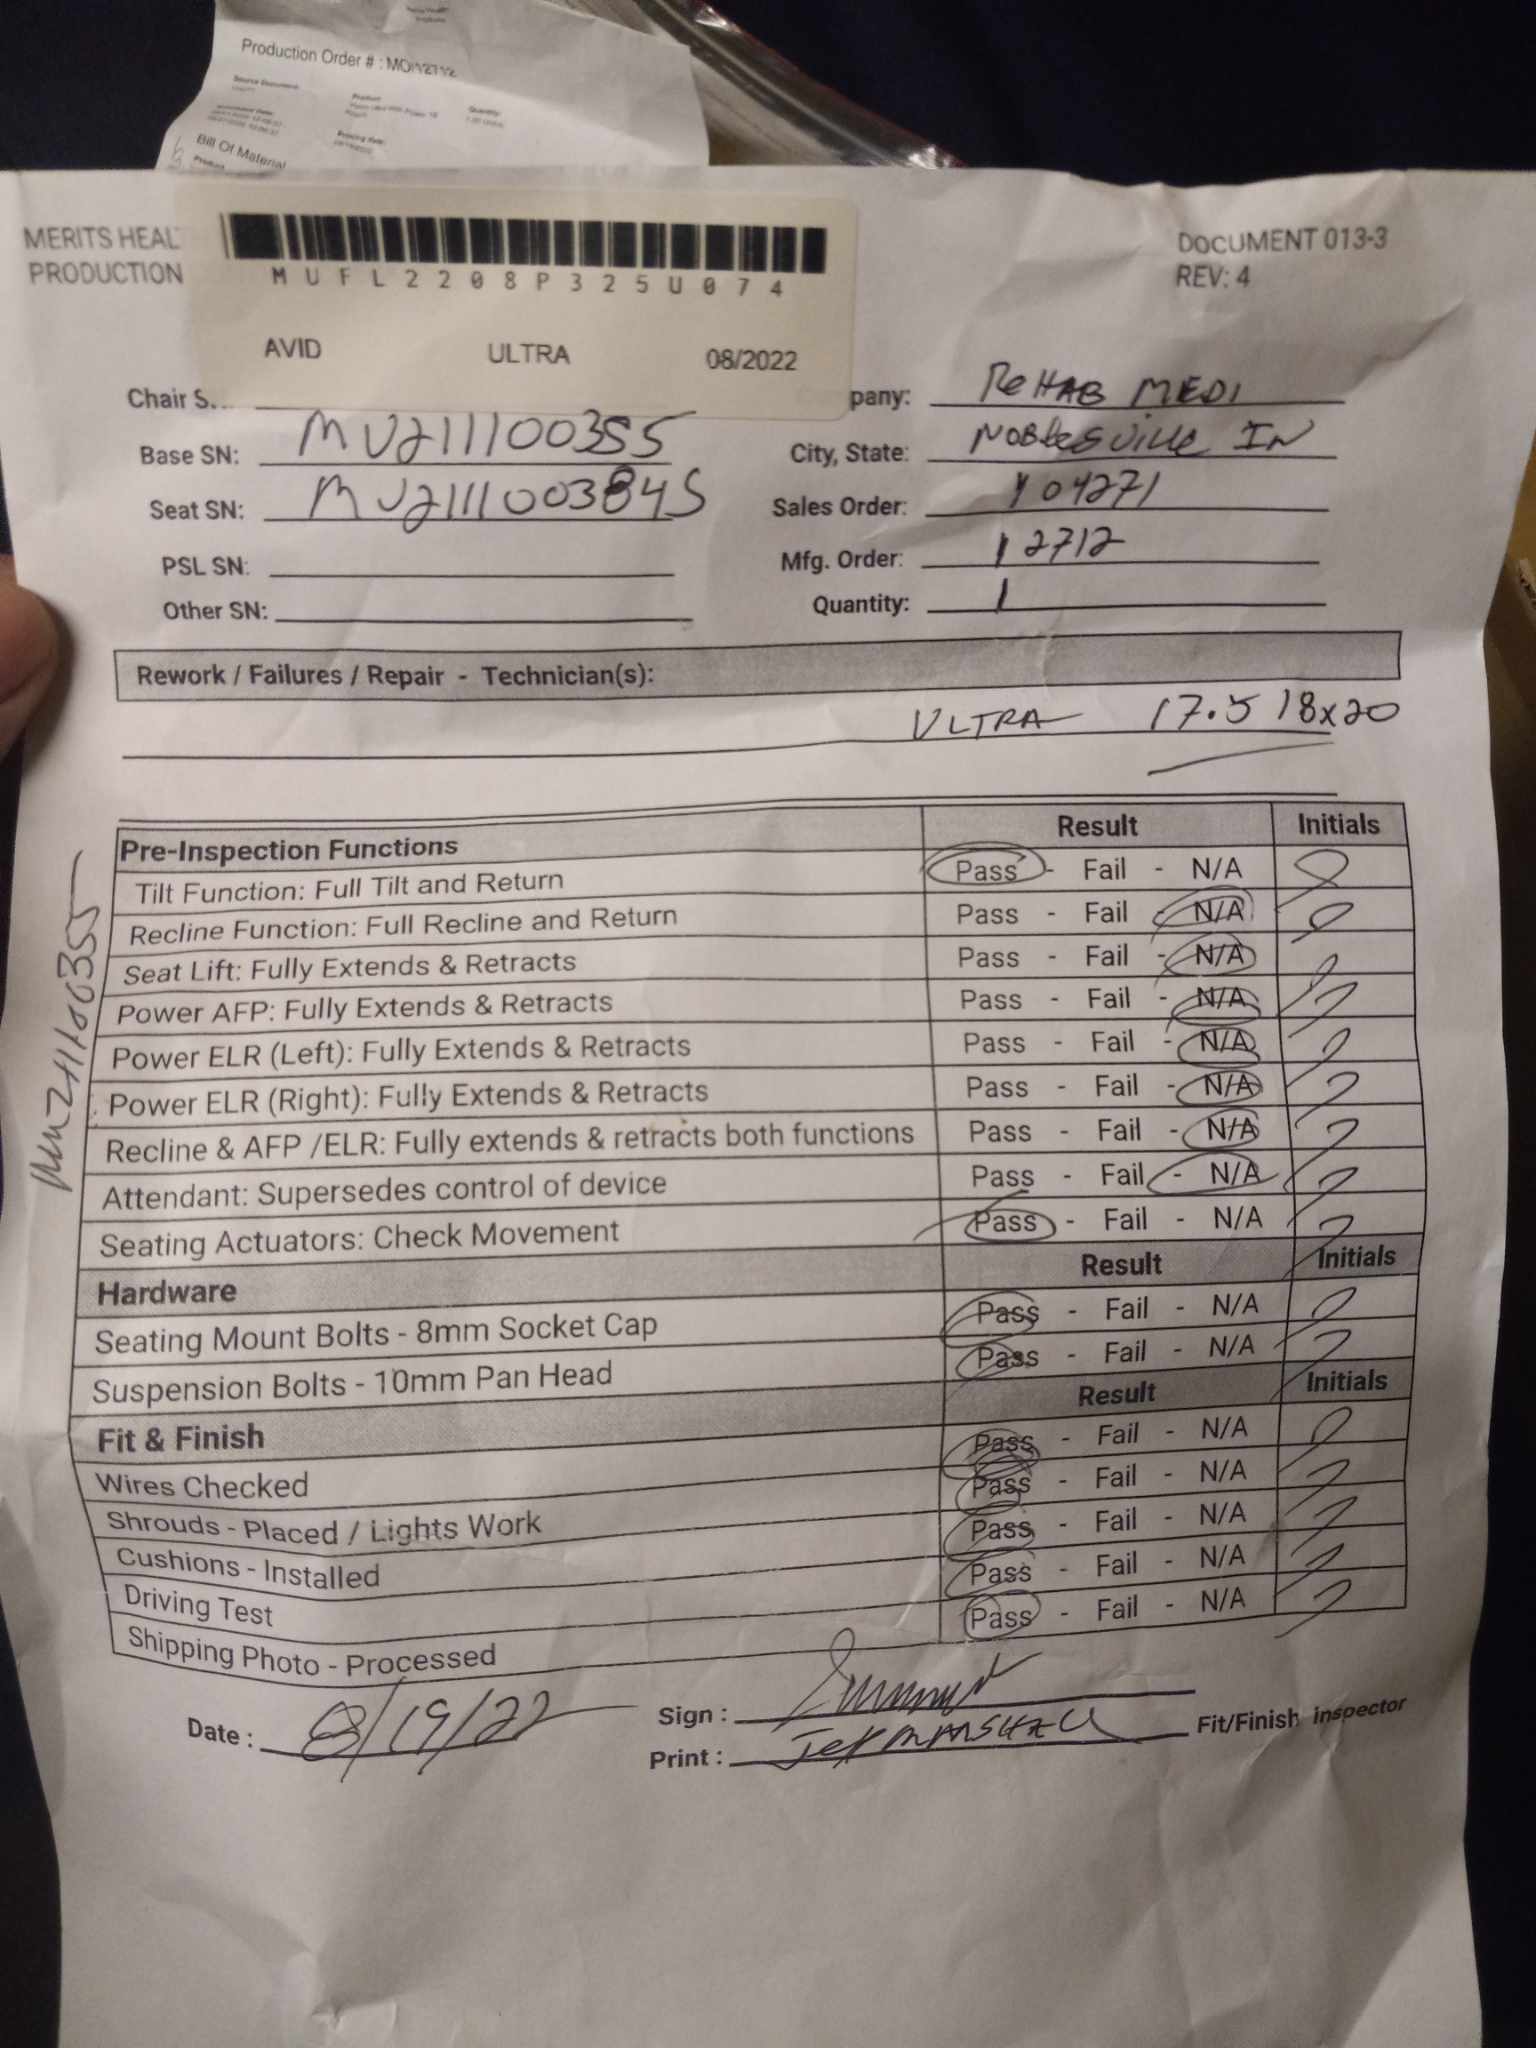 Production Order # : MO/12712
Product
Quantity:
Bill Of Material
Product
MERITS HEAL
PRODUCTION
MUFL2208P325U074
AVID ULTRA 08/2022
DOCUMENT 013-3
REV: 4
Chair S
pany: REHAB MEDI
Base SN: MU211100355
City, State: NOBLESVILLE IN
Seat SN: MU21110038 45
Sales Order: 104271
PSL SN:
Mfg. Order: 12712
Other SN:
Quantity: 1
Rework / Failures / Repair - Technician(s):
ULTRA 17.5 18x20
Pre-Inspection Functions Result Initials
Tilt Function: Full Tilt and Return Pass - Fail - N/A
Recline Function: Full Recline and Return Pass - Fail - N/A
Seat Lift: Fully Extends & Retracts Pass - Fail - N/A
Power AFP: Fully Extends & Retracts Pass - Fail - N/A
Power ELR (Left): Fully Extends & Retracts Pass - Fail - N/A
Power ELR (Right): Fully Extends & Retracts Pass - Fail - N/A
Recline & AFP /ELR: Fully extends & retracts both functions Pass - Fail - N/A
Attendant: Supersedes control of device Pass - Fail - N/A
Seating Actuators: Check Movement Pass - Fail - N/A
Hardware Result Initials
Seating Mount Bolts - 8mm Socket Cap Pass - Fail - N/A
Suspension Bolts - 10mm Pan Head Pass - Fail - N/A
Fit & Finish Result Initials
Wires Checked Pass - Fail - N/A
Shrouds - Placed / Lights Work Pass - Fail - N/A
Cushions - Installed Pass - Fail - N/A
Driving Test Pass - Fail - N/A
Shipping Photo - Processed Pass - Fail - N/A
Date : 8/19/22
Sign :
Print : Fit/Finish inspector